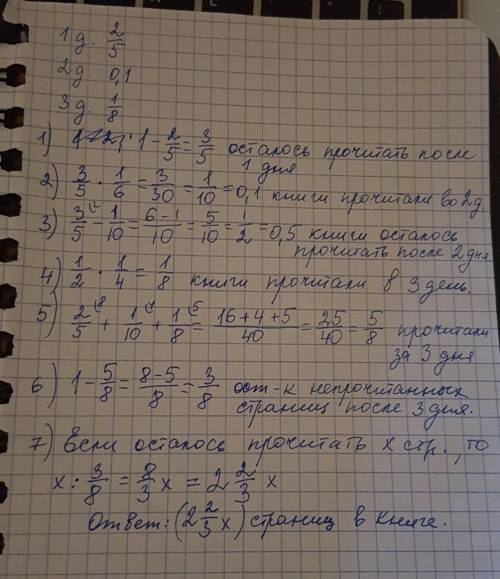 1д. 2/5
2д. 0,1
3д. 1/8
1) 1 - 2/5 = 3/5 осталось прочитать после
1 дня
2) 3/5 · 1/6 = 3/30 = 1/10 = 0,1 книги прочитали во 2д.
3) 3/5 - 1/10 = 6-1/10 = 5/10 = 1/2 = 0,5 книги осталось
прочитать после 2 дня
4) 1/2 · 1/4 = 1/8 книги прочитали в 3 день.
5) 2/5 + 1/10 + 1/8 = 16+4+5/40 = 25/40 = 5/8 прочитали
за 3 дня
6) 1 - 5/8 = 8-5/8 = 3/8 ост-к непрочитанных
страниц после 3 дня.
7) Если осталось прочитать x стр., то
x : 3/8 = 8/3 x = 2 2/3 x
Ответ: (2 2/3 x) страниц в книге.